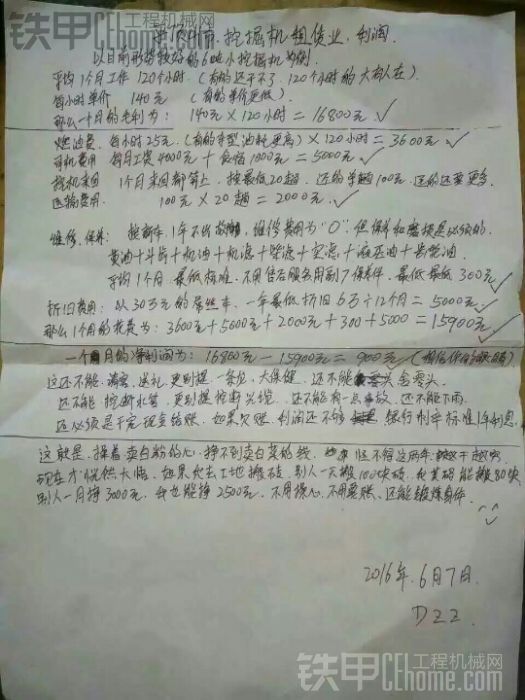 铁甲 工程机械网
CEhome.com
挖掘机租赁业、利润
以目前形势较好的6吨小挖掘机为例
平均1个月工作120个小时(有的还干不了120个小时的大有人在)
每小时单价 140元 (有的单价更低)
那么一个月的毛利为: 140元×120小时=16800元 ✓
燃油费 每小时25元(有的车型油耗更高)×120小时=3600元 ✓
司机费用 每月工资4000元+食宿1000元=5000元 ✓
找机来回 1个月来回都算上 按最低20趟 100元
运输费用 100元×20趟=2000元 ✓
维修、保养: 按新车1年不出故障,维修费用为"0",但保养和磨损是必须的
黄油+斗齿+机油+机滤+柴滤+空滤+液压油+齿轮油
平均1个月 最低标准 不用售后服务用副厂保养件 最低最低300元
折旧费用: 以30万元的屌丝车、一年最低折旧6万÷12个月=5000元 ✓
那么1个月的花费为: 3600元+5000元+2000元+300+5000=15900元 ✓
一个月的净利润为: 16800元-15900元=900元
这还不能请客、送礼、更别提一条龙、大保健、还不能零头舍零头
还不能挖断水管、更别提挖断光缆、还不能有一点事故、还不能下雨
还必须是干完现金结账、如果欠账、利润还不够 银行利率标准1年利息
这就是、操着卖白粉的心、挣不到卖白菜的钱、怪不得这两年越干越
现在才恍然大悟、如果我去工地搬砖、别人一天搬100块砖、我算能搬80块
别人一月挣3000元、我也能挣2500元、不用操心、不用要账、还能锻炼身体
2016年6月7日
DZZ
铁甲 工程机械网
CEhome.com